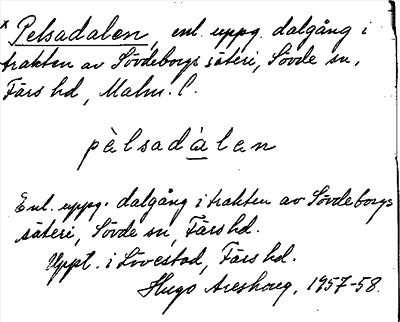 x Pelsadalen, enl. uppg. dalgång i
trakten av Sövdeborgs säteri, Sövde sn,
Färs hd, Malm. l.
pèlsadàlen
Enl. uppg. dalgång i trakten av Sövdeborgs
säteri, Sövde sn, Färs hd.
Uppt. i Lövestad, Färs hd.
Hugo Areskoug, 1957-58.